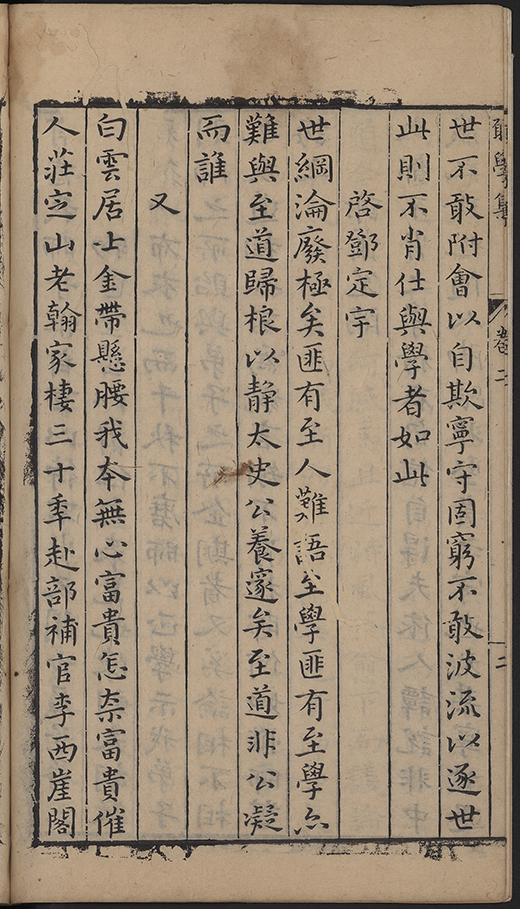 學集 卷二 二
世不敢附會以自欺寧守固窮不敢波流以逐世
此則不肖仕與學者如此
啓鄧定宇
世綱淪廢極矣匪有至人難語至學匪有至學亦
難與至道歸根以静太史公養邃矣至道非公凝
而誰
又
白雲居士金帶懸腰我本無心富貴怎柰富貴催
人莊定山老翰家棲三十秊赴部補官李西崖閣